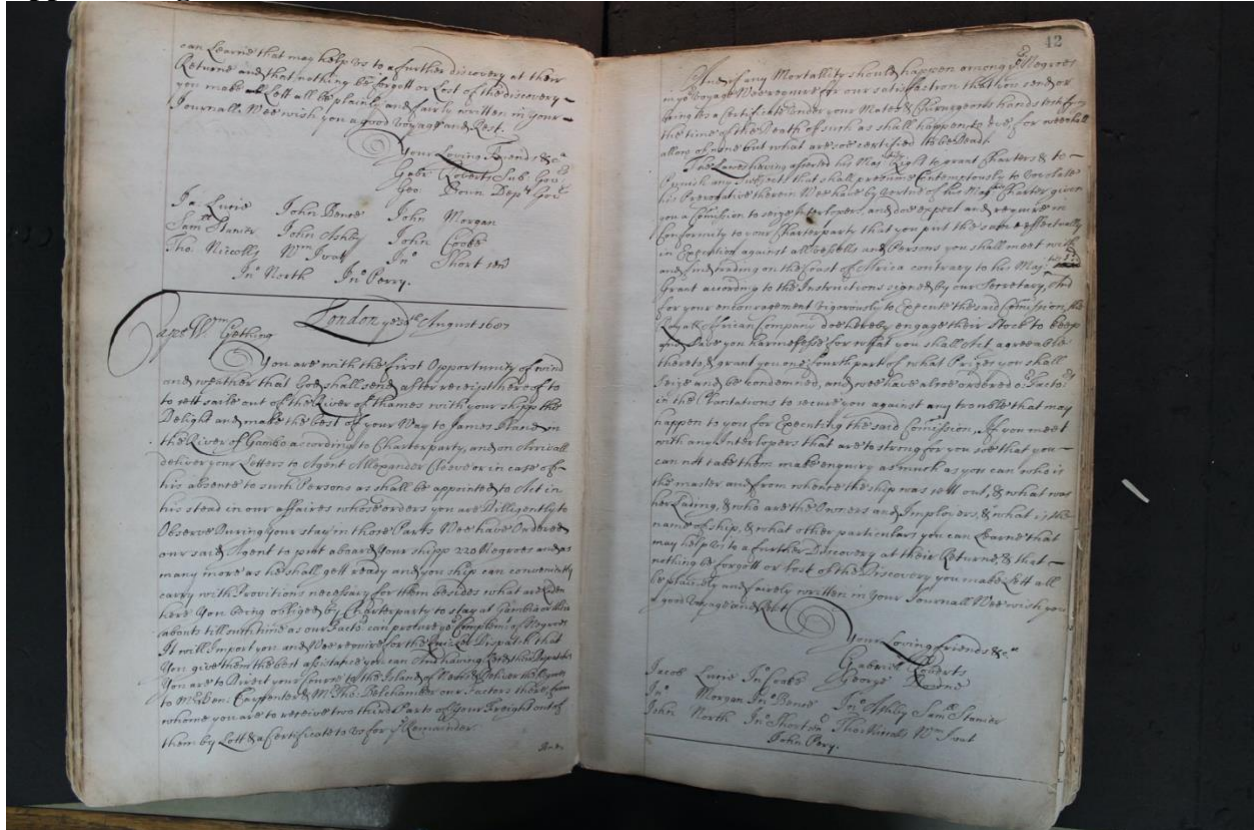 can Learne that may help us to a further discovery at their
Returne and that nothing be forgott or Lost of the discovery
you make Lett all be plainly and fairly written in your
Journall. Wee wish you a good voyage and Rest.
Your Loving Friends &ca
Gabr Roberts Sub Gour
Geo: Boun Depty Gour
Ja. Lucie John Bence John Morgan
Saml Stanier John Ashby John Cooke
Tho: Nicoolls Wm Ivatt Jno Short senr
Jno North Jno Perry.
London ye August 1687
Capt Wm Gething
You are with the first Opportunity of wind
and weather that God shall send after receipt hereof to
to sett saile out of the River of Thames with your shipp the
Delight and make the best of your Way to James Island in
the River of Gambo according to Charterparty, and on Arrivall
deliver your Letters to Agent Allexander Cleeve or in case of
his absence to such Persons as shall be appointed to Act in
his stead in our affaires whose orders you are Dilligently to
Observe During your stay in those Parts Wee have Ordered
our said Agent to putt aboard Your shipp 220 Negroes and as
many more as he shall gett ready and you ship can conveniently
carry with Provitions necessary for them besides what are Laden
here You being obliged by Charterparty to stay at Gambia or
abouts till such time as our Factors can procure ye Complemt of Negroes
It will Import you and Wee require for the Quicker Dispatch that
You give them the best assistance you can And having
You are to Direct your Course to the Island of Nevis & Deliver the Negroes
to Mr Robert Carpenter & Mr Tho: Belchamber our Factors there, from
whome you are to receive two third Parts of Your Freight out of
them by Lott & a Certificate to us for ye Remainder.
And
42
And if any Mortallity should happen among ye Negroes
in ye Voyage Wee require for our satisfaction that you send or
bring us a Certificate under your Mates & Chirurgeons hands testifying
the time of the Death of such as shall happen to dye for wee shall
allow of none but what are soe certified to be Dead.
The Lawes having asserted his Majties Right to grant Charters & to
Punish any Subjects that shall presume Contemptously to Violate
his Prerogative therein Wee have by Vertue of his Majties Charter given
you a Comission to seize Interlopers, and doe expect and require in
Conformity to your Charterparty that you put the same effectually
in Execution against all vessells and Persons you shall meet with
and find trading on the Coast of Africa contrary to his Majties
Grant according to the Instructions signed by our Secretary, And
for your encouragement Vigorously to Execute the said Comission, the
Royall African Company doe hereby engage their Stock to keep
and Save you harmelesse for what you shall Act agreeable
thereto & grant you one fourth part of what Prizes you shall
Seize and be Condemned, and wee have alsoe ordered or Factors
in the Plantations to secure you against any trouble that may
happen to you for Executing the said Comission, If you meet
with any Interlopers that are to strong for you soe that you
can not take them make enquiry as much as you can who is
the master and from whence the ship was sett out, & what was
her Lading, & who are the Owners and Imployers, & what is the
name of ship, & what other particulars you can Learne that
may help us to a further Discovery at their Returne, & that
nothing be forgott or lost of the Discovery you make Lett all
be plainely and fairely written in Your Journall Wee wish you
a good voyage and Rest
Your Loving friends &ca
Gabriel Roberts
Jacob Lucie Jno Cooke George
Jno Morgan Jno Bence Jno Ashby Saml Stanier
John North Jno Short senr Tho: Nicoolls Wm Ivatt
John Pery.